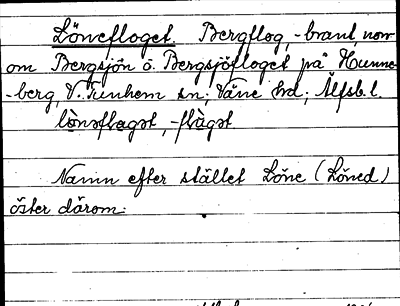 Lönefloget. Bergflog, -brant norr
om Bergsjön o. Bergsjöfloget på Hunne-
-berg, V. Tunhem sn; Väne hd; Älfsb. l.
lònəflægət, -flàgət
Namn efter stället Löne (Löned)
öster därom.